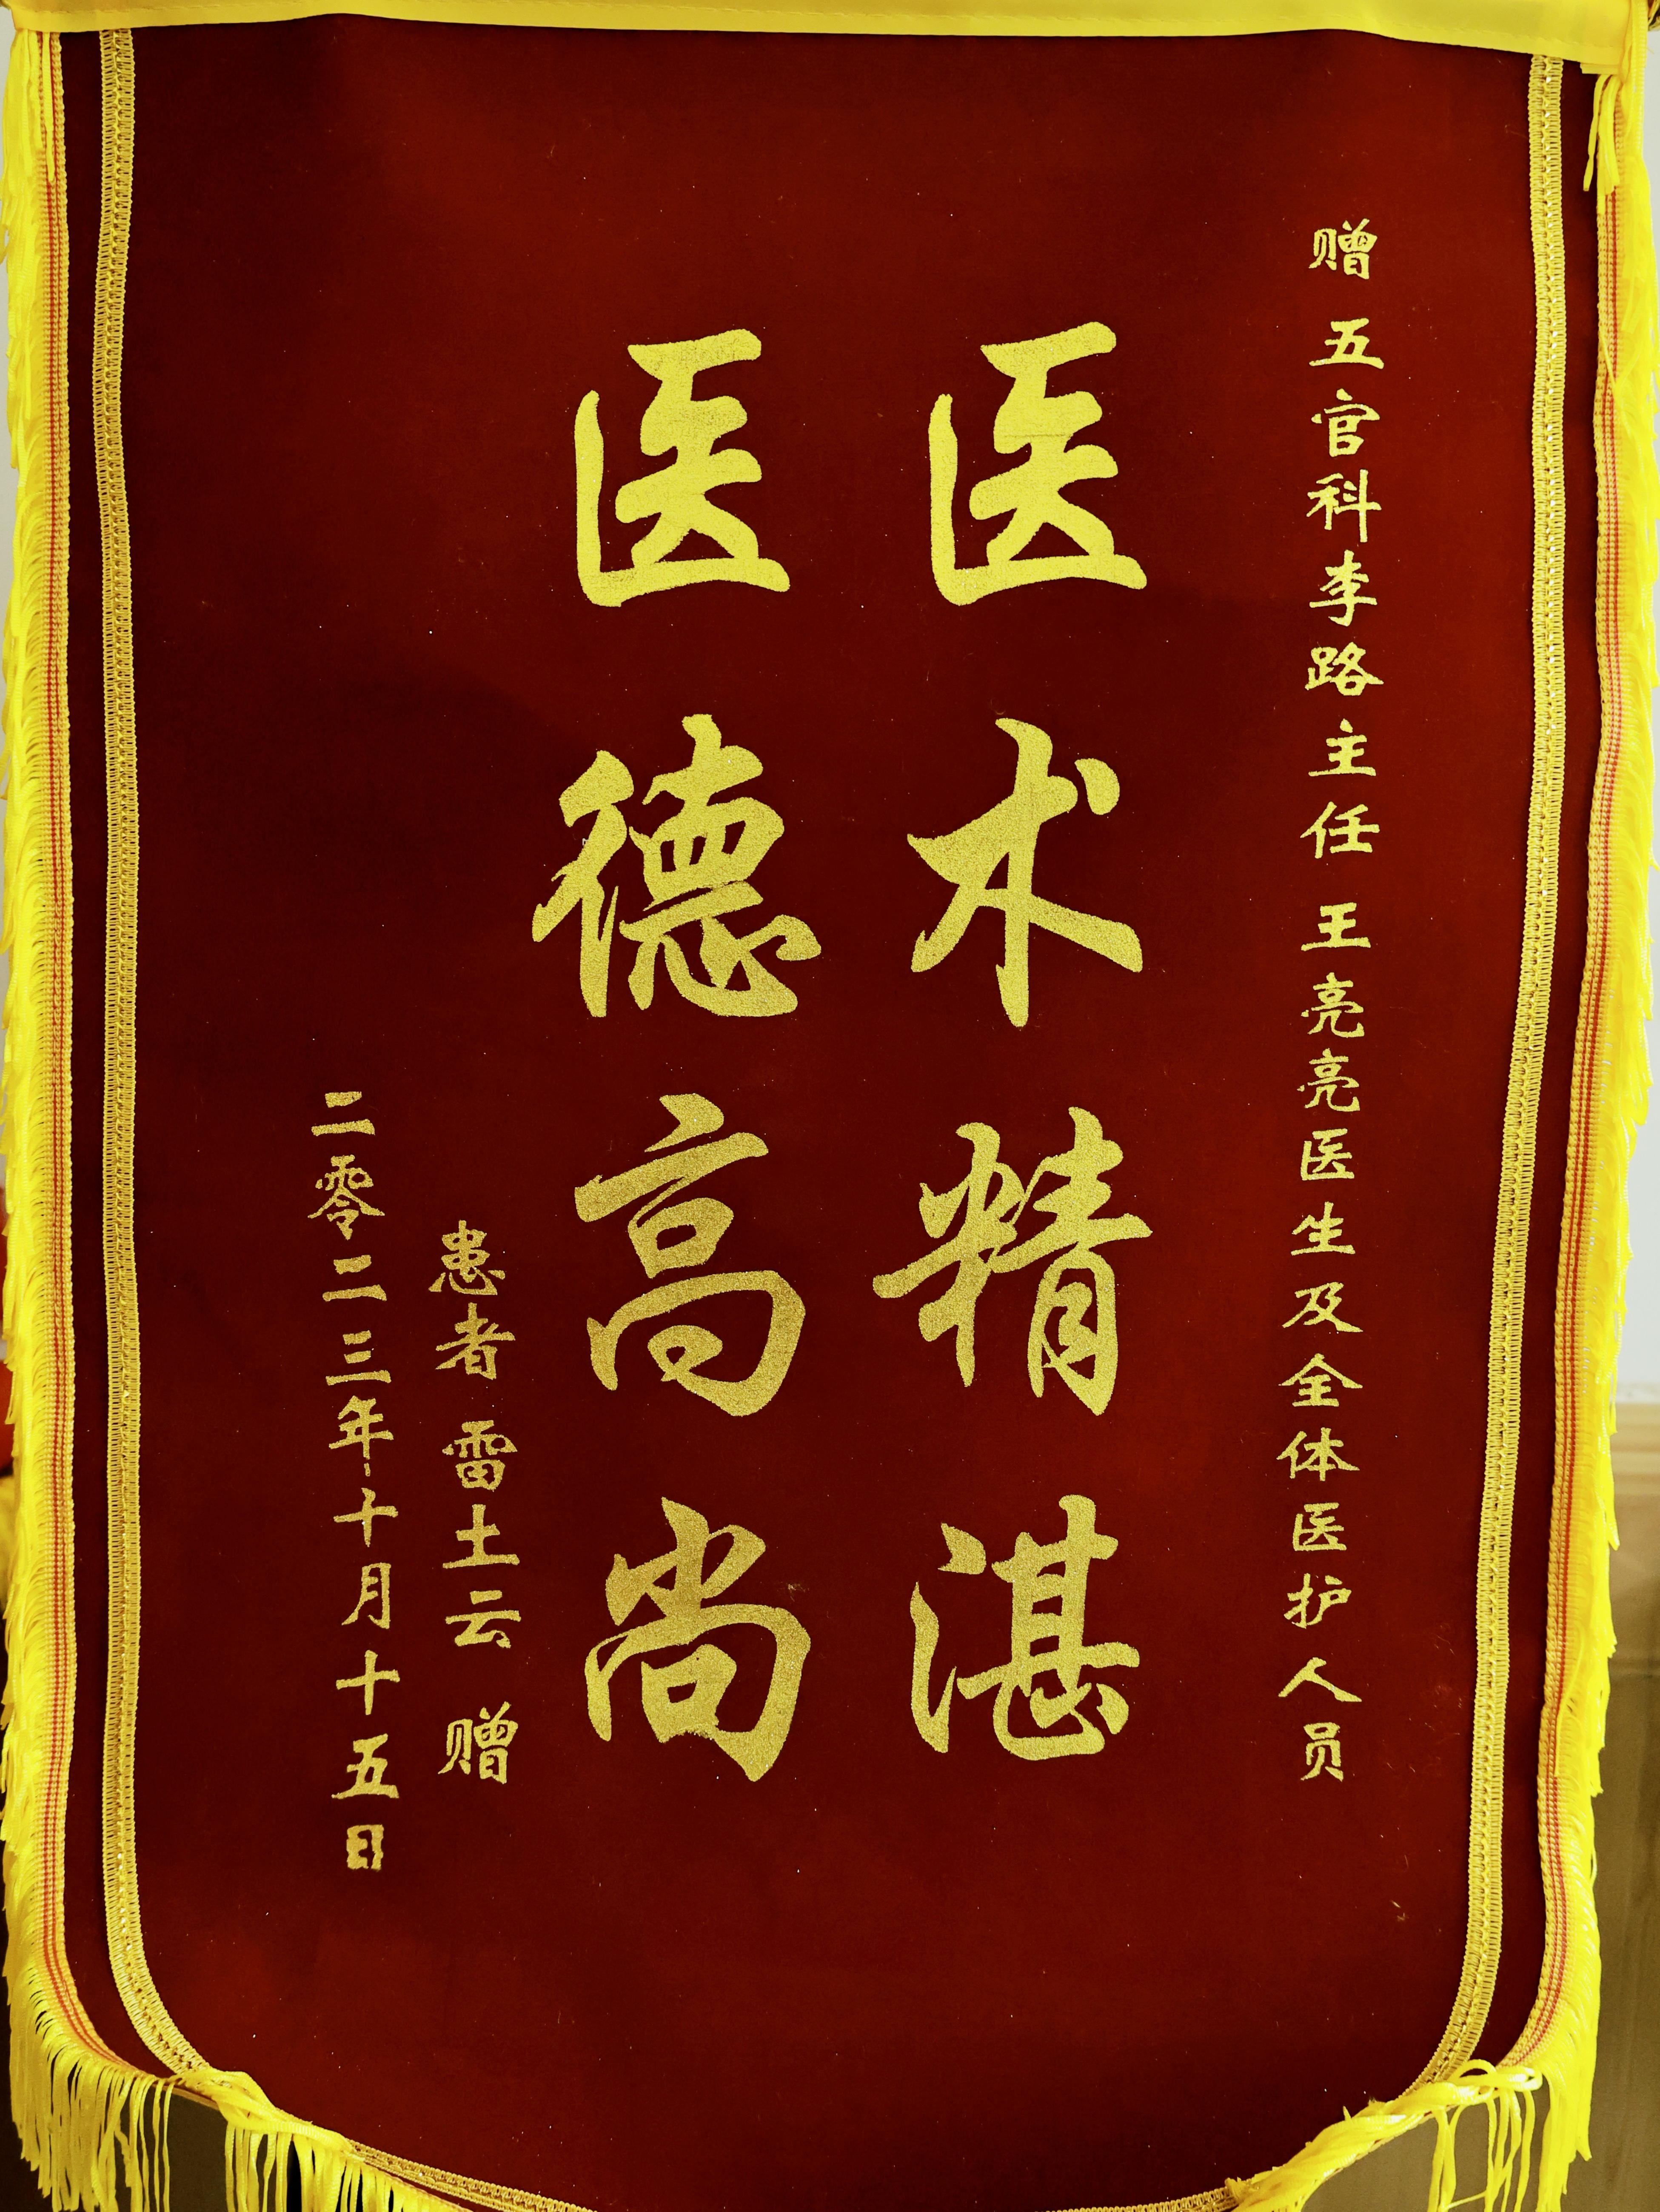 赠 五官科李路主任 王亮亮医生及全体医护人员
医术精湛
医德高尚
患者 雷土云 赠
二零二三年十月十五日